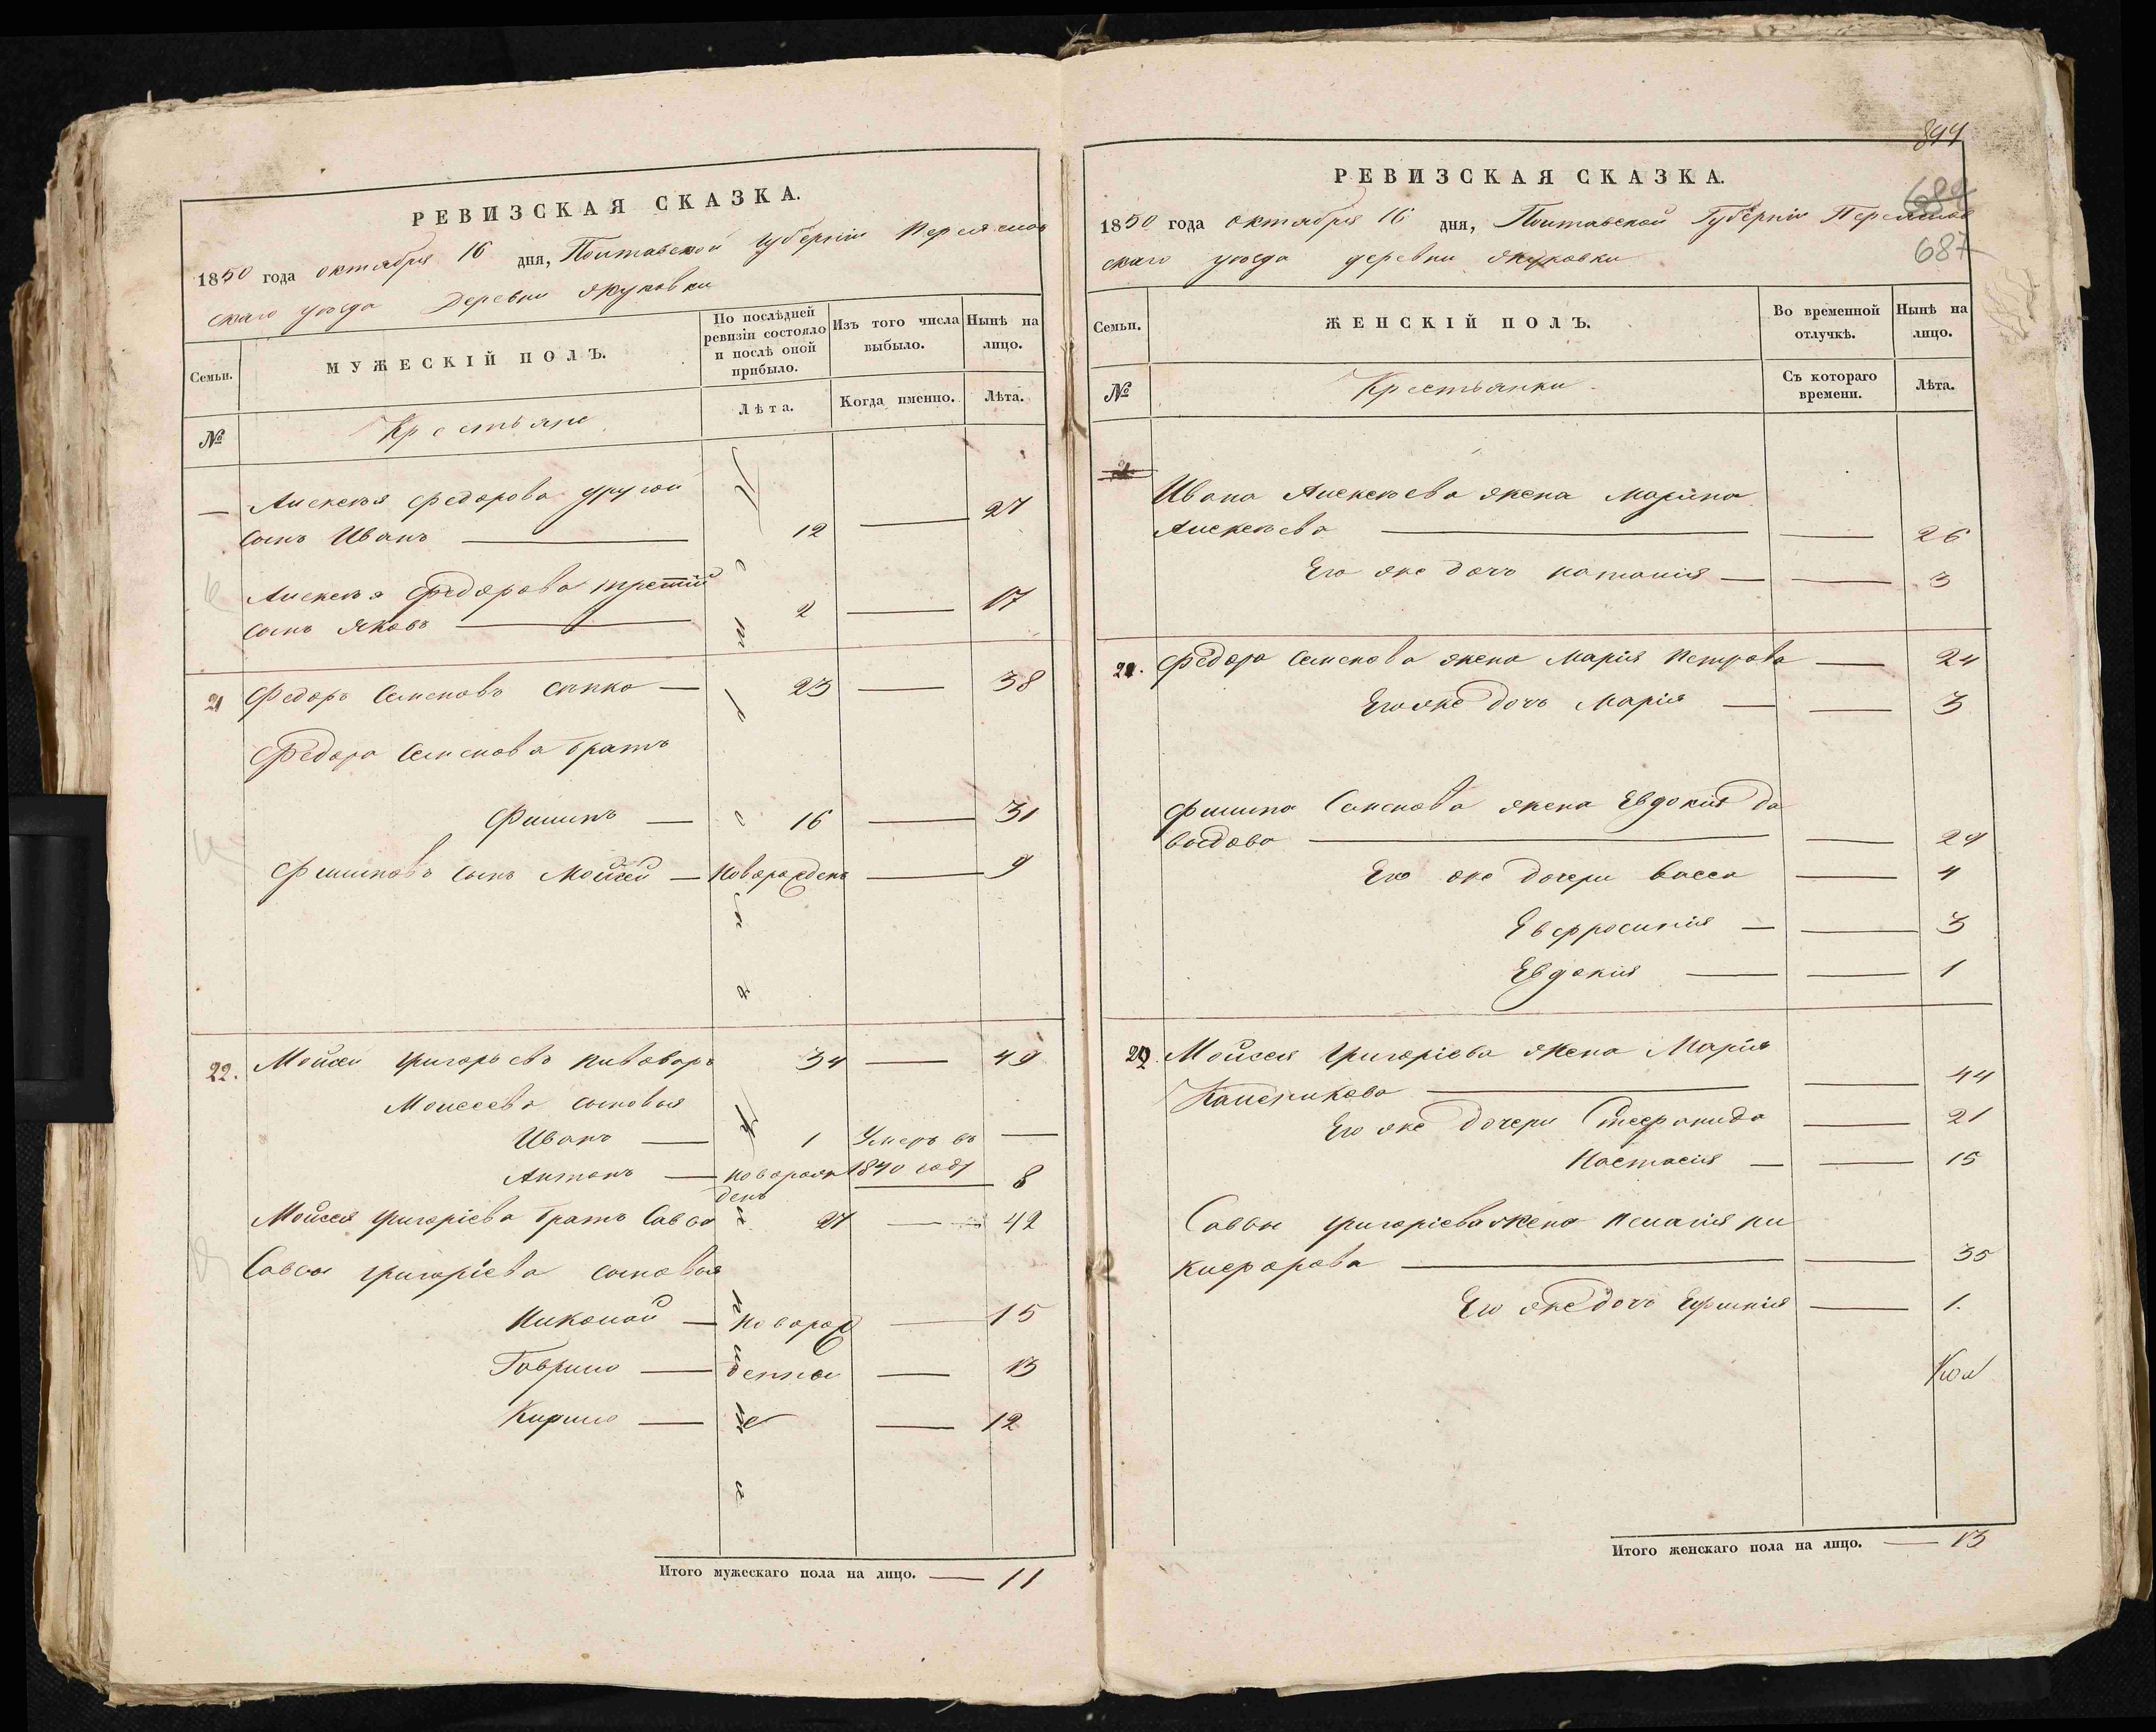 РЕВИЗСКАЯ СКАЗКА.
1850 года октября 16 дня, Полтавской губернiи Переяслов
скаго уезда деревни Якуковки
Семьи.
МУЖЕСКІЙ ПОЛЪ.
По послѣдней ревизіи состояло и послѣ оной прибыло.
Изъ того числа выбыло.
Нынѣ на лицо.
№
Крестьяне
Лѣта.
Когда именно.
Лѣта.
— Алексѣя Федорова другой
сынъ Иванъ — 12 — 27
Алексѣя Федорова третiй
сынъ Яковъ — 2 — 17
21 Федоръ Семеновъ — 23 — 38
Федора Семенова братъ
Филипъ — 16 — 31
Филиповъ сынъ Мойсей — новорожденъ — 9
22. Мойсей Григорьевъ Пивоваръ 34 — 49
Моисеева сыновья
Иванъ — 1 Умеръ въ —
Антонъ — новорож 1840 году 8
денъ
Мойсея Григорiева братъ Савва 27 — 42
Саввы Григорiева сыновья
Николай — новорож — 15
Гаврило — денны — 13
Кирило — е — 12
Итого мужескаго пола на лицо. — 11
844
684
687
РЕВИЗСКАЯ СКАЗКА.
1850 года октября 16 дня, Полтавской Губернiи Переяслов
скаго уезда деревни Якуковки
Семьи.
ЖЕНСКІЙ ПОЛЪ.
Во временной отлучкѣ.
Нынѣ на лицо.
№
Крестьянки.
Съ котораго времени.
Лѣта.
Ивана Алексѣева жена Марiна
Алексѣева — — 26
Его же дочь Наталiя — — 3
21. Федора Семенова жена Марiя Петрова — 24
Его же дочь Марiя — — 3
Филипа Семенова жена Евдокiя Да
выдова — — 29
Его же дочери Васса — 4
Евфросинiя — — 3
Евдокiя — — 1
22. Мойсея Григорiева жена Марiя
— — 44
Его же дочери Стефанида — 21
Настасiя — — 15
Саввы Григорiева жена Пелагiя Ни
кифорова — — 35
Его же дочь Ефимiя — 1.
Итого женскаго пола на лицо. — 13